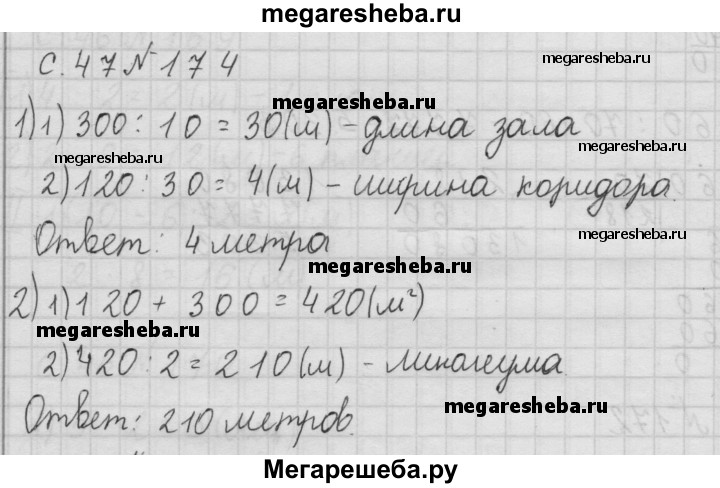 megaresheba.ru
с. 47 № 174
megaresheba.ru
megaresheba.ru
1) 1) 300 : 10 = 30 (м) - длина зала
megaresheba.ru
megaresheba.ru
2) 120 : 30 = 4 (м) - ширина коридора.
Ответ: 4 метра
megaresheba.ru
megaresheba.ru
2) 1) 120 + 300 = 420 (м²)
megaresheba.ru
2) 420 : 2 = 210 (м) - линолеума.
Ответ: 210 метров.
megaresheba.ru
№ 172
Мегарешеба.ру